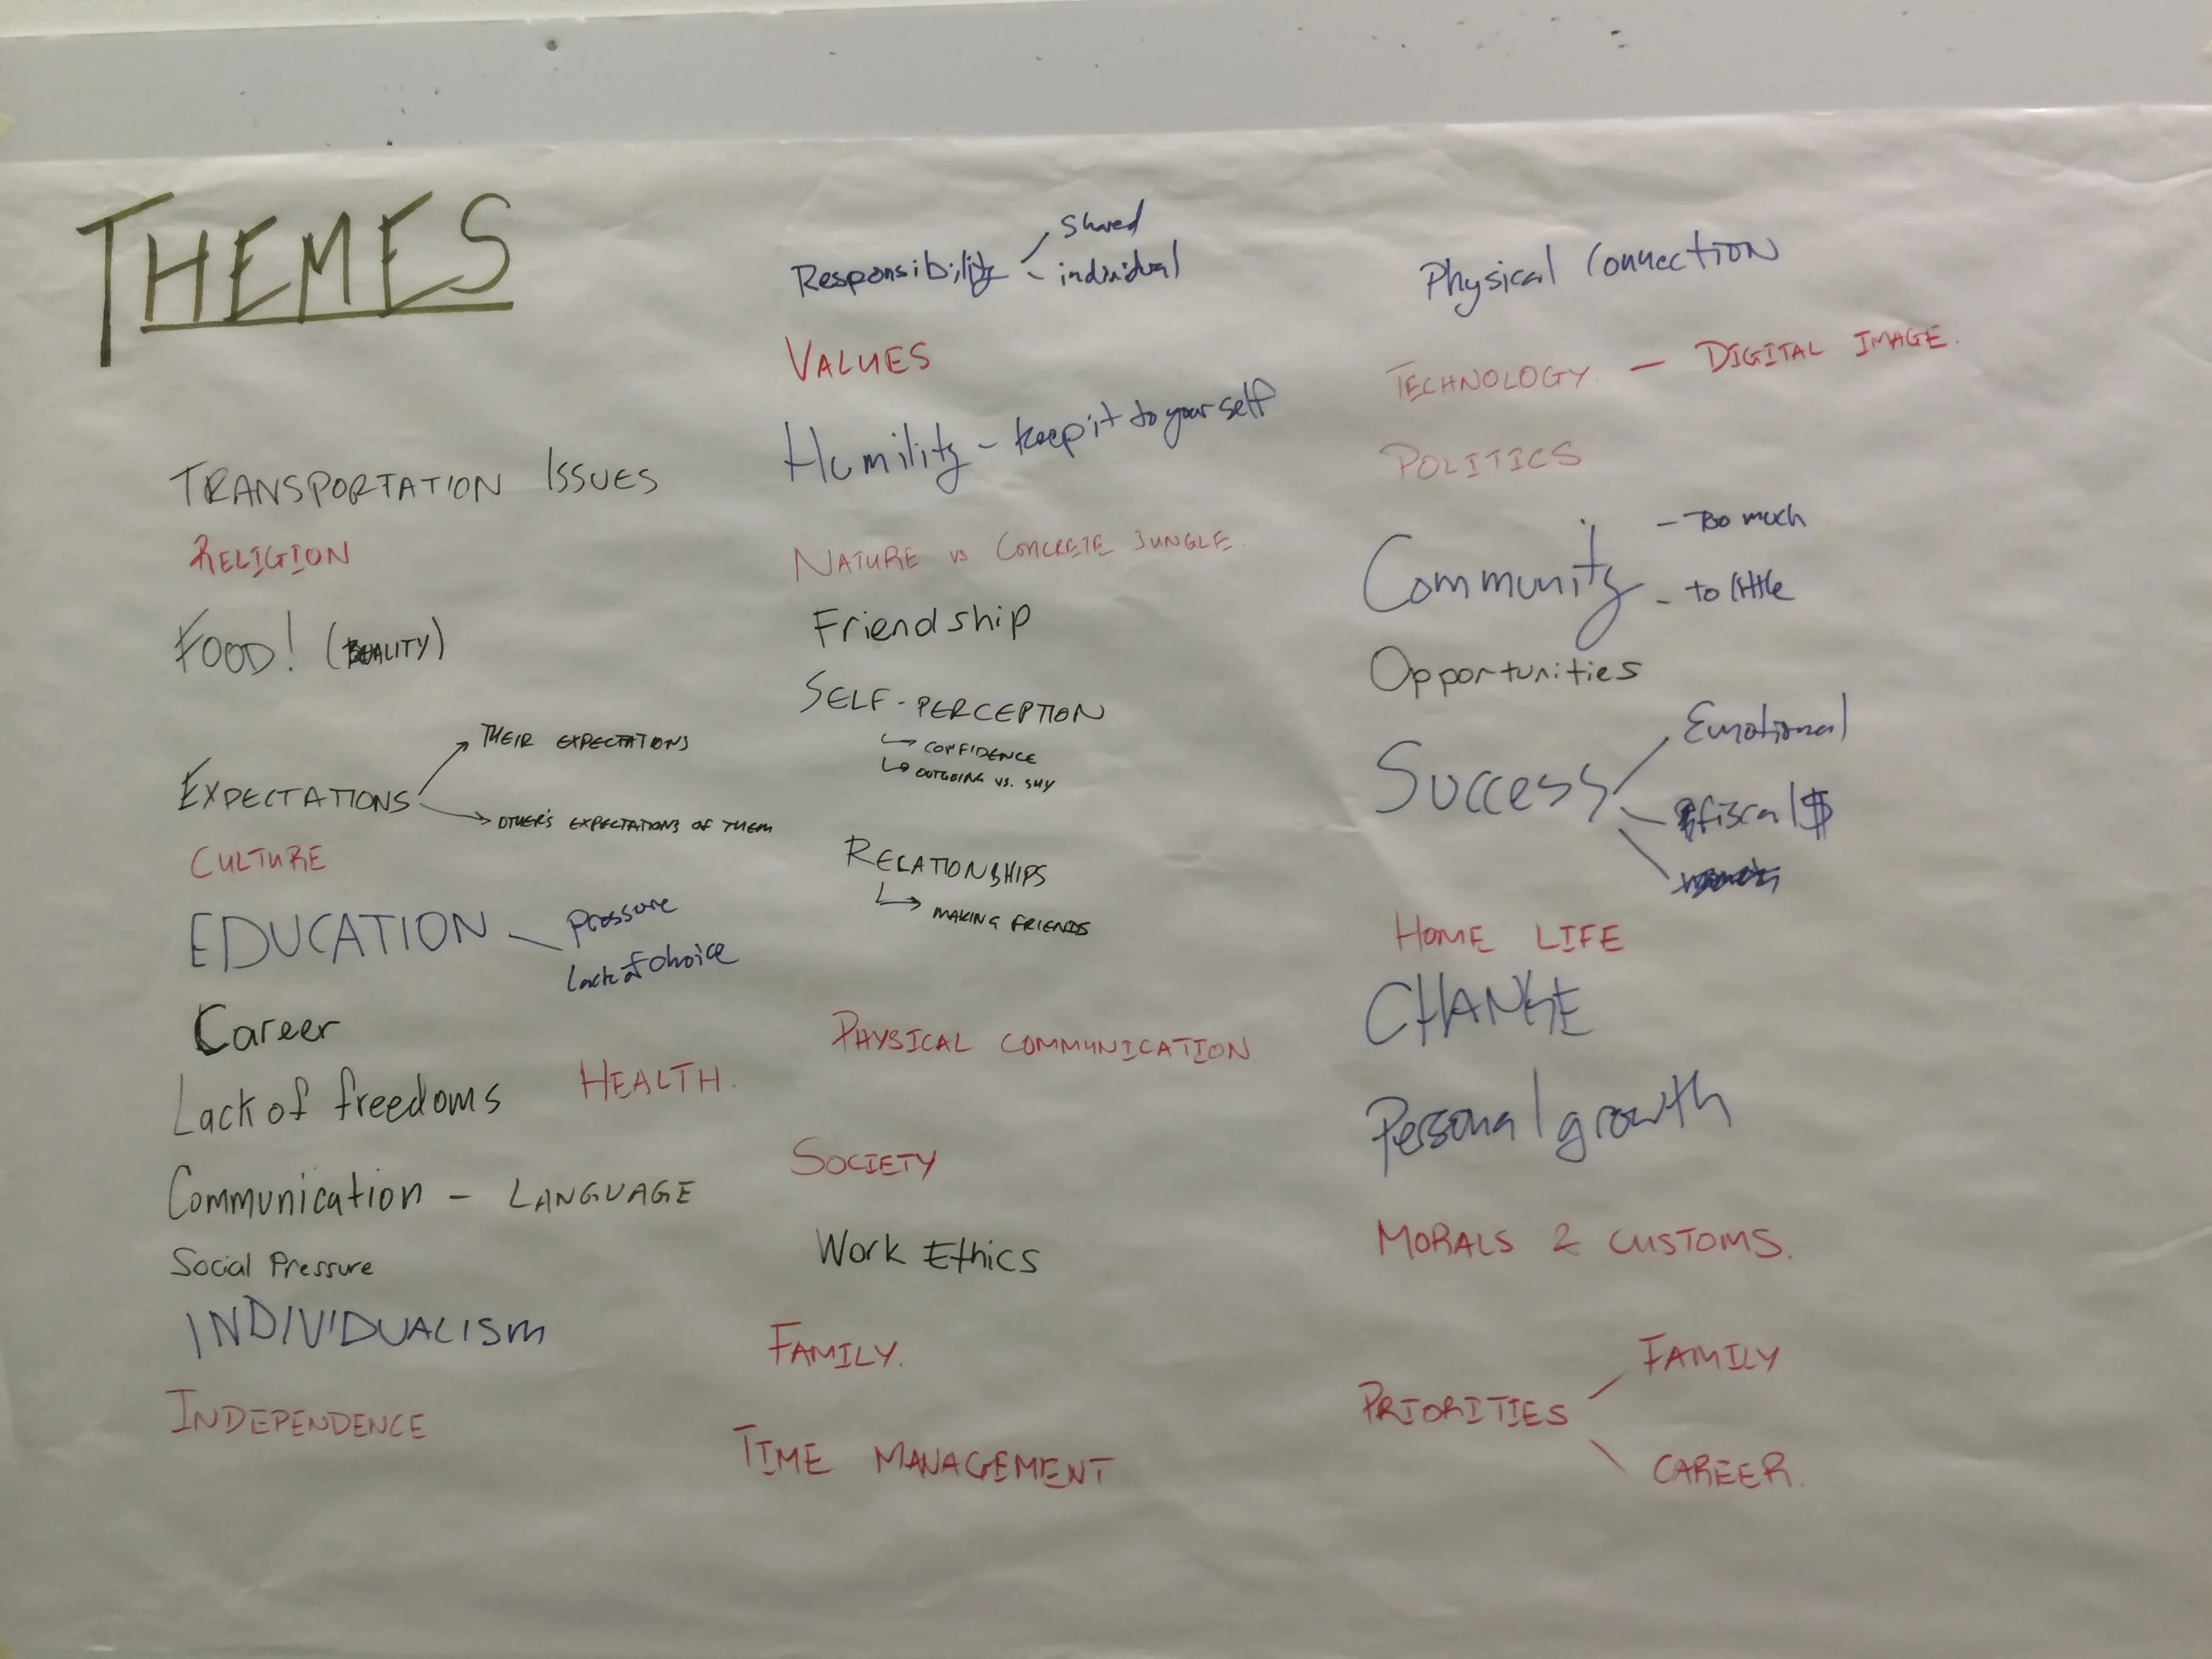 THEMES
TRANSPORTATION ISSUES
RELIGION
FOOD! (QUALITY)
THEIR EXPECTATIONS
EXPECTATIONS
OTHER'S EXPECTATIONS OF THEM
CULTURE
EDUCATION - pressure
Lack of choice
Career
Lack of freedoms
HEALTH.
Communication - LANGUAGE
Social Pressure
INDIVIDUALISM
INDEPENDENCE
Shared
Responsibility - individual
VALUES
Humility - keep it to yourself
NATURE VS CONCRETE JUNGLE.
Friendship
SELF-PERCEPTION
CONFIDENCE
OUTGOING VS. SHY
RELATIONSHIPS
MAKING FRIENDS
PHYSICAL COMMUNICATION
SOCIETY
Work Ethics
FAMILY.
TIME MANAGEMENT
Physical Connection
TECHNOLOGY. - DIGITAL IMAGE.
POLITICS
- Too much
Community
- to little
Opportunities
Emotional
Success
fiscal $
HOME LIFE
CHANGE
Personal growth
MORALS & CUSTOMS.
FAMILY
PRIORITIES
CAREER.